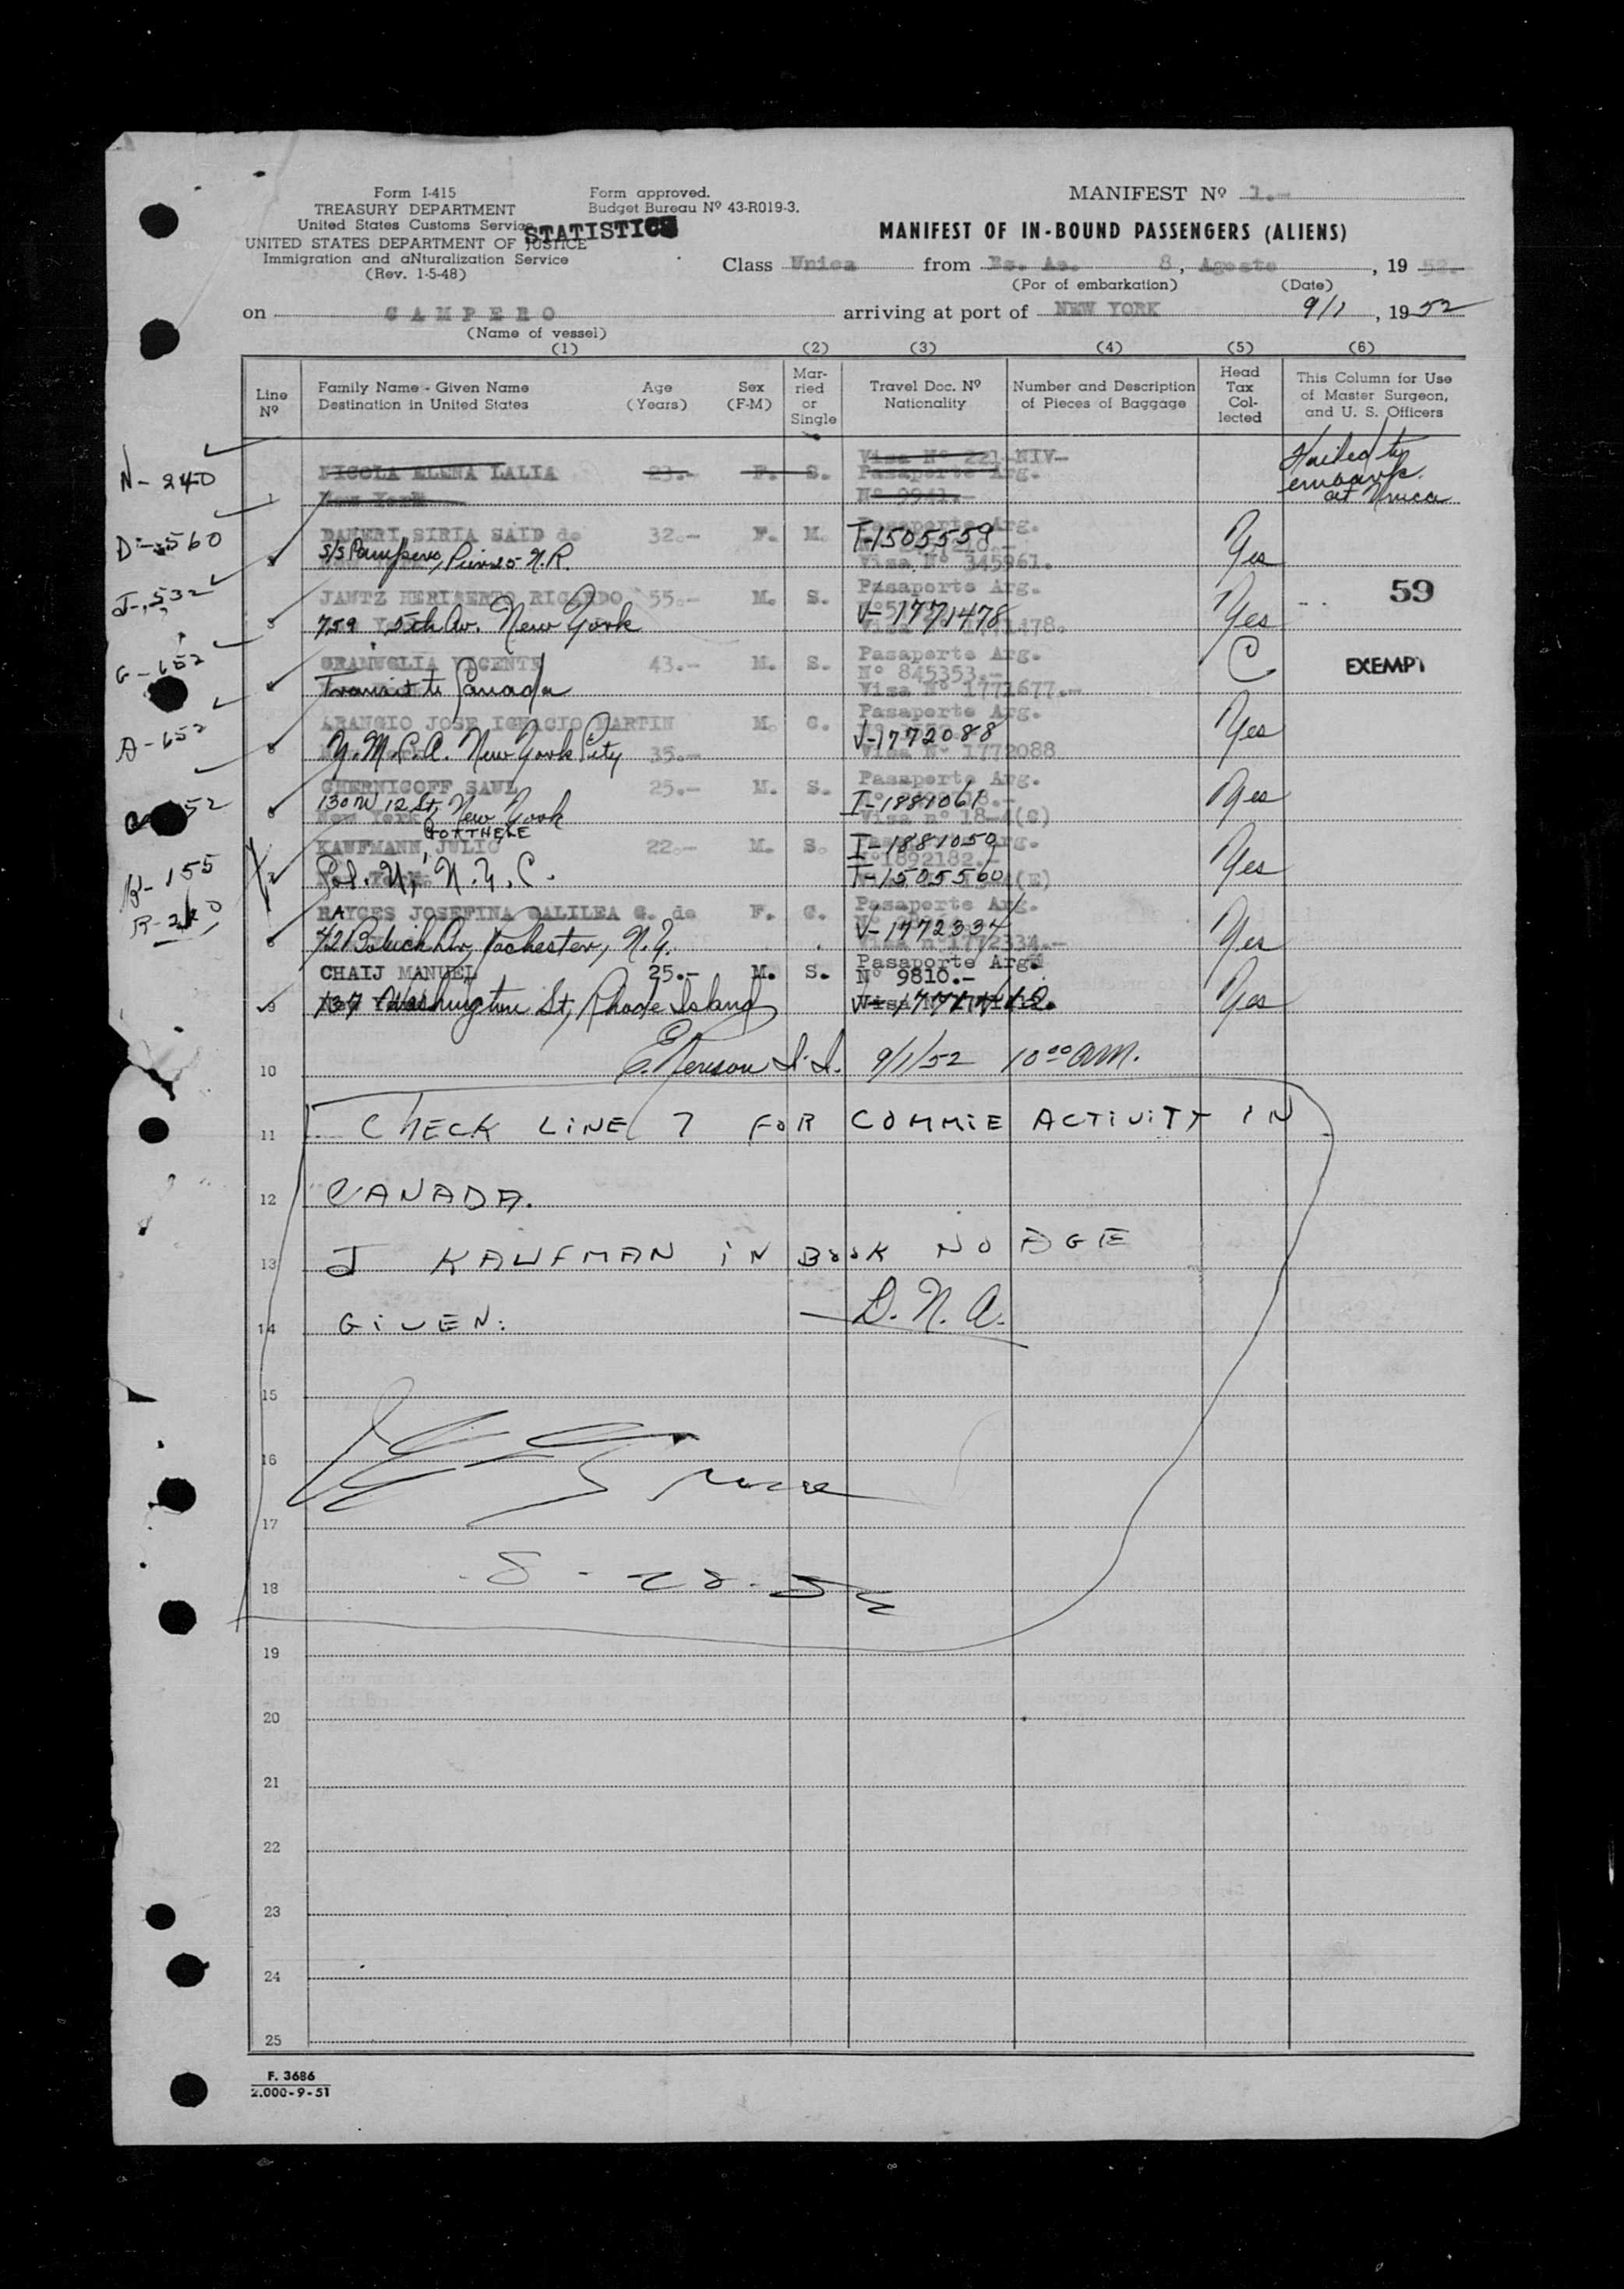 Form I-415
TREASURY DEPARTMENT
United States Customs Service
UNITED STATES DEPARTMENT OF JUSTICE
Immigration and aNturalization Service
(Rev. 1-5-48)
Form approved.
Budget Bureau Nº 43-R019-3.
STATISTICS
MANIFEST Nº 1.-
MANIFEST OF IN-BOUND PASSENGERS (ALIENS)
Class Unica from Bs. As. 8, Agosto, 19 52.-
(Por of embarkation) (Date)
on CAMPERO arriving at port of NEW YORK 9/1, 1952
(Name of vessel)
(1) (2) (3) (4) (5) (6)
Line Nº
Family Name - Given Name
Destination in United States
Age (Years)
Sex (F-M)
Married or Single
Travel Doc. Nº
Nationality
Number and Description of Pieces of Baggage
Head Tax Collected
This Column for Use of Master Surgeon, and U. S. Officers
N-240 NICOLA ELENA LALIA 23.- F. S. Visa Nº 221 NIV-
Pasaporte Arg.
1 New York Nº 9941.-
Failed to embark at
D-560 SIRIA SAID de 32.- F. M. T-1505559 Pasaporte Arg.
S/S Pampero, Pier N.R. Visa Nº 345961. Yes
J-532 JANTZ HERIBERTO RICARDO 55.- M. S. Pasaporte Arg.
3 759 5th Av. New York V-1771478 Yes
59
G-652 GRAMUGLIA VICENTE 43.- M. S. Pasaporte Arg.
Nº 845353.-
Transit to Canada Visa Nº 1771677.- C
EXEMPT
A-652 ARANGIO JOSE IGNACIO MARTIN M. C. Pasaporte Arg.
Y.M.C.A. New York City 35.- V-1772088 Visa Nº 1772088 Yes
52 CHERNICOFF SAUL 25.- M. S. Pasaporte Arg.
130 W 12 St, New York I-1881061 Yes
GOTTHELF
K-155 KAUFMANN JULIO 22.- M. S. I-1881050
Nº 1892182.-
N.Y.C. T-1505560 Yes
R-220 RAYCES JOSEFINA GALILEA G. de F. C. Pasaporte Arg.
8 Rochester, N.Y. V-1772334 Visa nº 1772334.- Yes
CHAIJ MANUEL 25.- M. S. Pasaporte Arg.
Nº 9810.-
9 137 Washington St, Rhode Island Yes
10 9/1/52 10 00 AM.
11 CHECK LINE 7 FOR COMMIE ACTIVITY IN
12 CANADA.
13 J KAUFMAN IN BOOK NO AGE
14 GIVEN. — D.N.A.
15
16
17
18 8-28-52
19
20
21
22
23
24
25
F. 3686
2.000-9-51